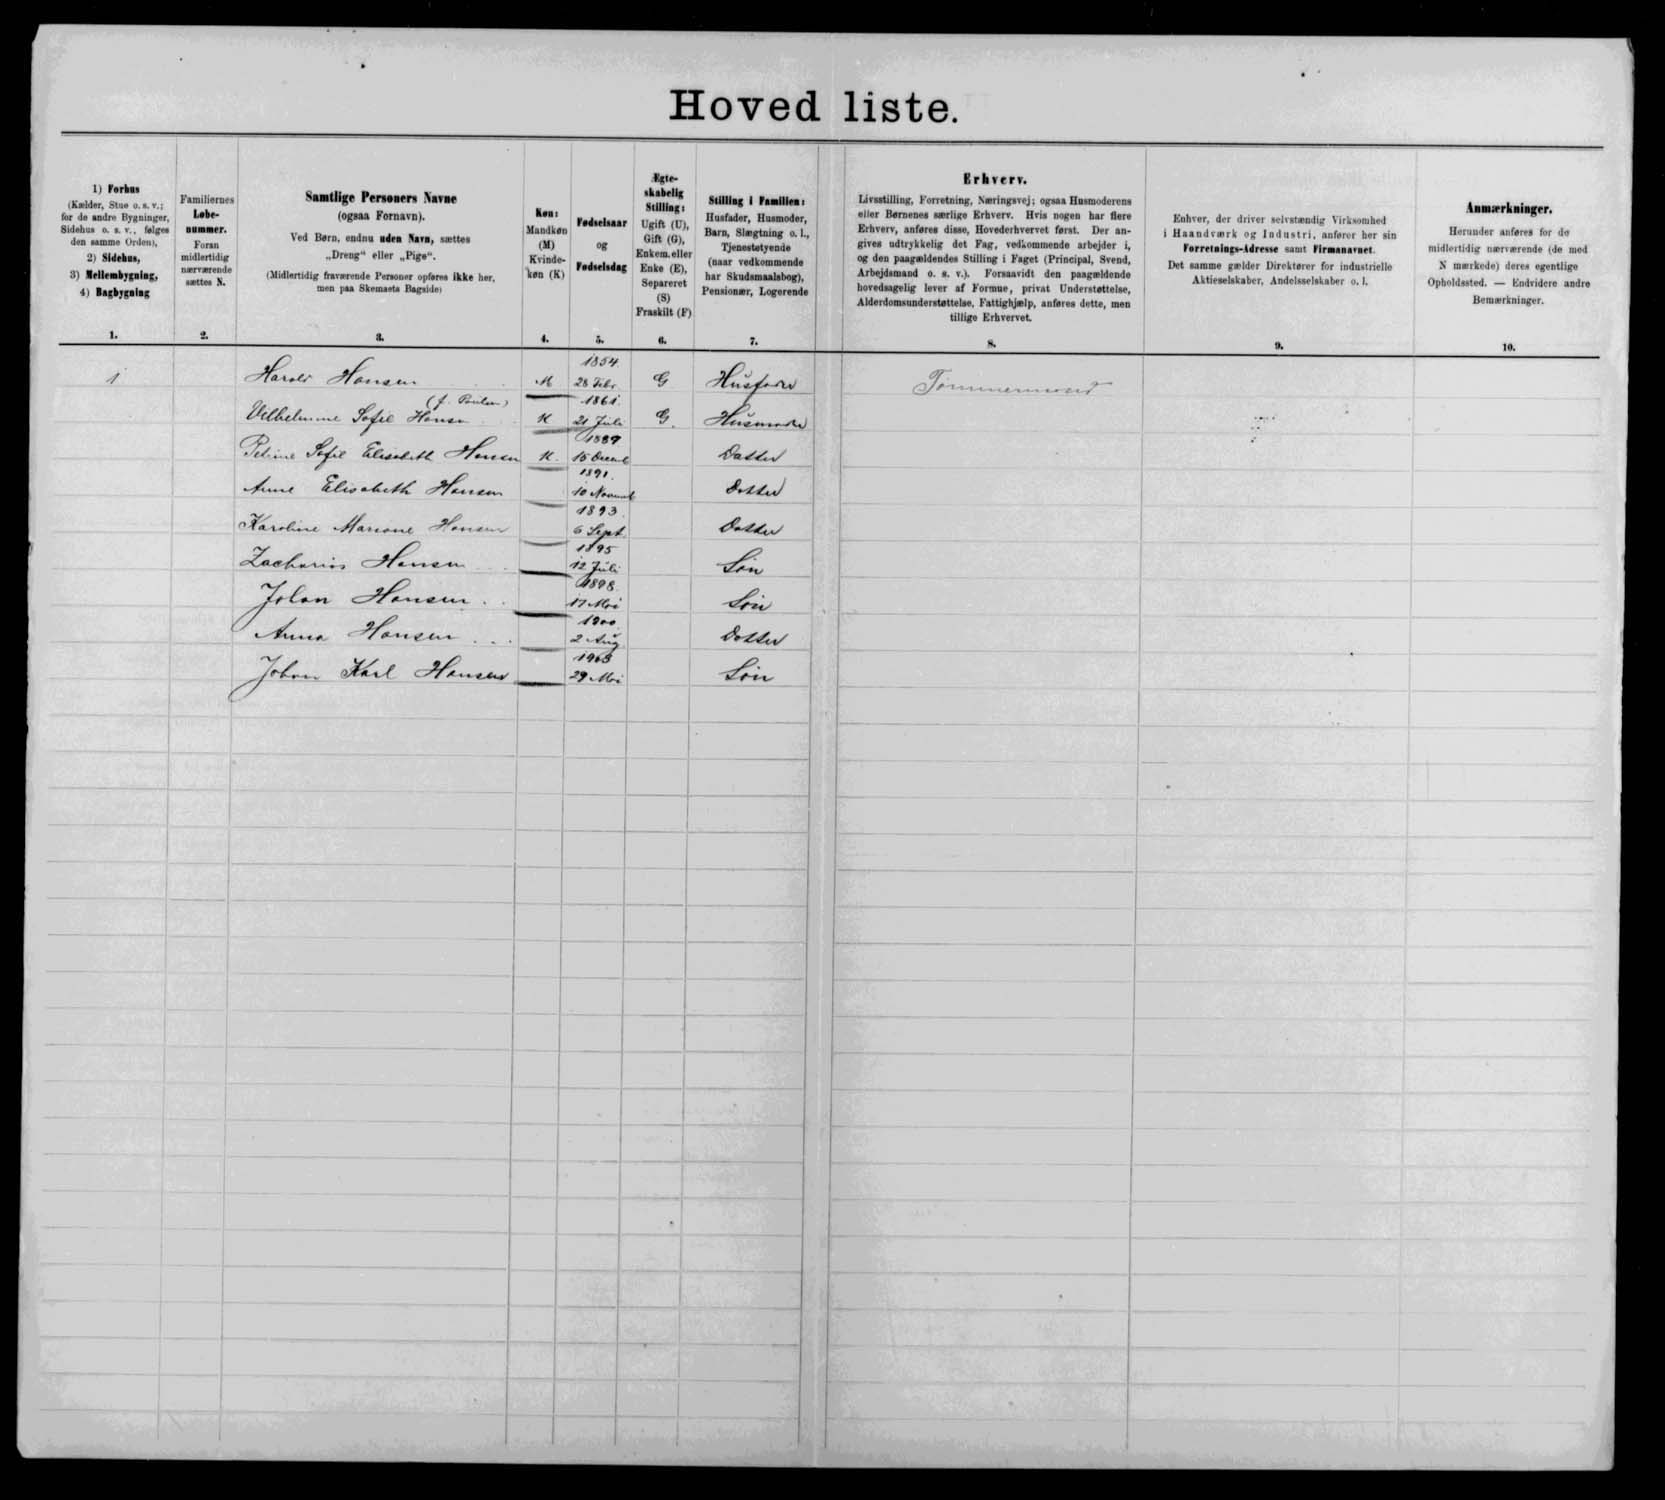 Hoved liste.
1) Forhus
(Kælder, Stue o. s. v.;
for de andre Bygninger,
Sidehus o. s. v., følges
den samme Orden),
2) Sidehus,
3) Mellembygning,
4) Bagbygning
1.
Familiernes
Løbe-
nummer.
Foran
midlertidig
nærværende
sættes N.
2.
Samtlige Personers Navne
(ogsaa Fornavn).
Ved Børn, endnu uden Navn, sættes
„Dreng“ eller „Pige“.
(Midlertidig fraværende Personer opføres ikke her,
men paa Skemaets Bagside)
3.
Køn:
Mandkøn
(M)
Kvinde-
køn (K)
4.
Fødselsaar
og
Fødselsdag
5.
Ægte-
skabelig
Stilling:
Ugift (U),
Gift (G),
Enkem. eller
Enke (E),
Separeret
(S)
Fraskilt (F)
6.
Stilling i Familien:
Husfader, Husmoder,
Barn, Slægtning o. l.,
Tjenestetyende
(naar vedkommende
har Skudsmaalsbog),
Pensionær, Logerende
7.
Erhverv.
Livsstilling, Forretning, Næringsvej; ogsaa Husmoderens
eller Børnenes særlige Erhverv. Hvis nogen har flere
Erhverv, anføres disse, Hovederhvervet først. Der an-
gives udtrykkelig det Fag, vedkommende arbejder i,
og den paagældendes Stilling i Faget (Principal, Svend,
Arbejdsmand o. s. v.). Forsaavidt den paagældende
hovedsagelig lever af Formue, privat Understøttelse,
Alderdomsunderstøttelse, Fattighjælp, anføres dette, men
tillige Erhvervet.
8.
Enhver, der driver selvstændig Virksomhed
i Haandværk og Industri, anfører her sin
Forretnings-Adresse samt Firmanavnet.
Det samme gælder Direktører for industrielle
Aktieselskaber, Andelsselskaber o. l.
9.
Anmærkninger.
Herunder anføres for de
midlertidig nærværende (de med
N mærkede) deres egentlige
Opholdssted. — Endvidere andre
Bemærkninger.
10.
1 Harald Hansen M 1854. 28 Febr. G Husfader Tømmermand
(f. Poulsen)
Vilhelmine Sofie Hansen K 1861. 21 Juli G. Husmoder
Petrine Sofie Elisabeth Hansen K. 15 Decemb Datter
Anne Elisabeth Hansen 1891. 10 Novemb Datter
Karoline Mariane Hansen 1893. 6 Sept. Datter
Zacharias Hansen 1895 12 Juli Søn
Johan Hansen 1898. 17 Mai Søn
Anna Hansen 1900. 2 Aug Datter
Johan Karl Hansen 1903 29 Mai Søn